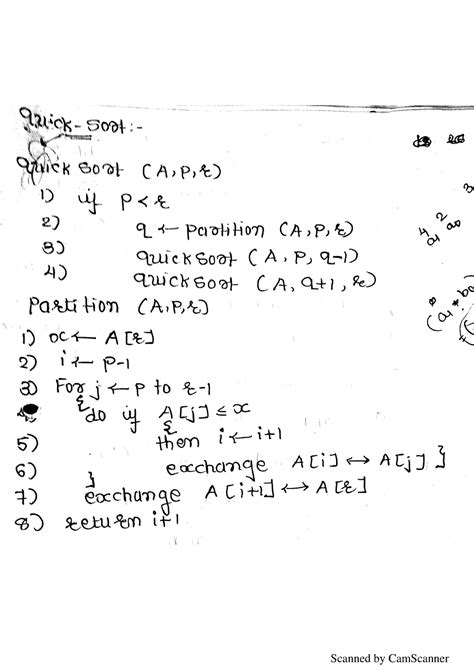 Quick-Sort:-
Quick Sort (A,P,r)
1) if P<r
2) q ← Partition (A,P,r)
3) quickSort (A, P, q-1)
4) quickSort (A, q+1, r)
Partition (A,P,r)
1) x ← A[r]
2) i ← P-1
3) For j ← P to r-1
{ do if A[j] ≤ x
5) { then i ← i+1
6) } exchange A[i] ↔ A[j] }
7) exchange A[i+1] ↔ A[r]
8) return i+1
Scanned by CamScanner